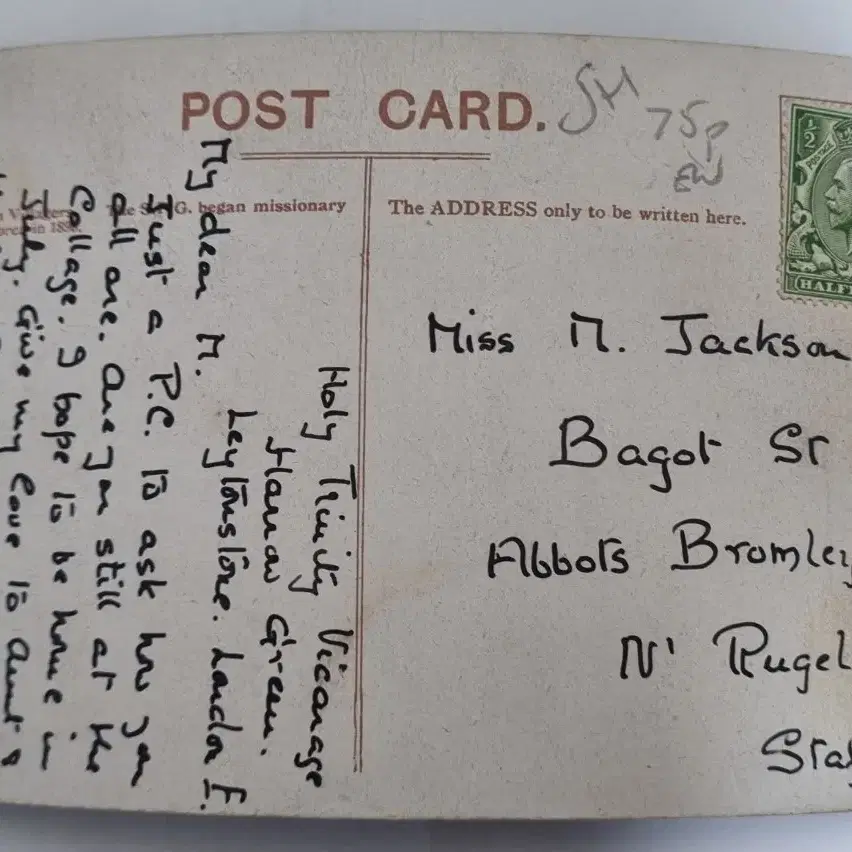 POST CARD.
SH
75p
EW
½
POSTAGE
HALF
G. began missionary
in 18
The ADDRESS only to be written here.
Miss M. Jackson
Bagot St
Abbots Bromley
Nr Rugel
Sta
Holy Trinity Vicarage
Harrow Green.
Leytonstone. London E.
My dear M.
Just a P.C. to ask how you
all are. Are you still at the
Collage. I hope to be home in
July. Give my love to Aunt &